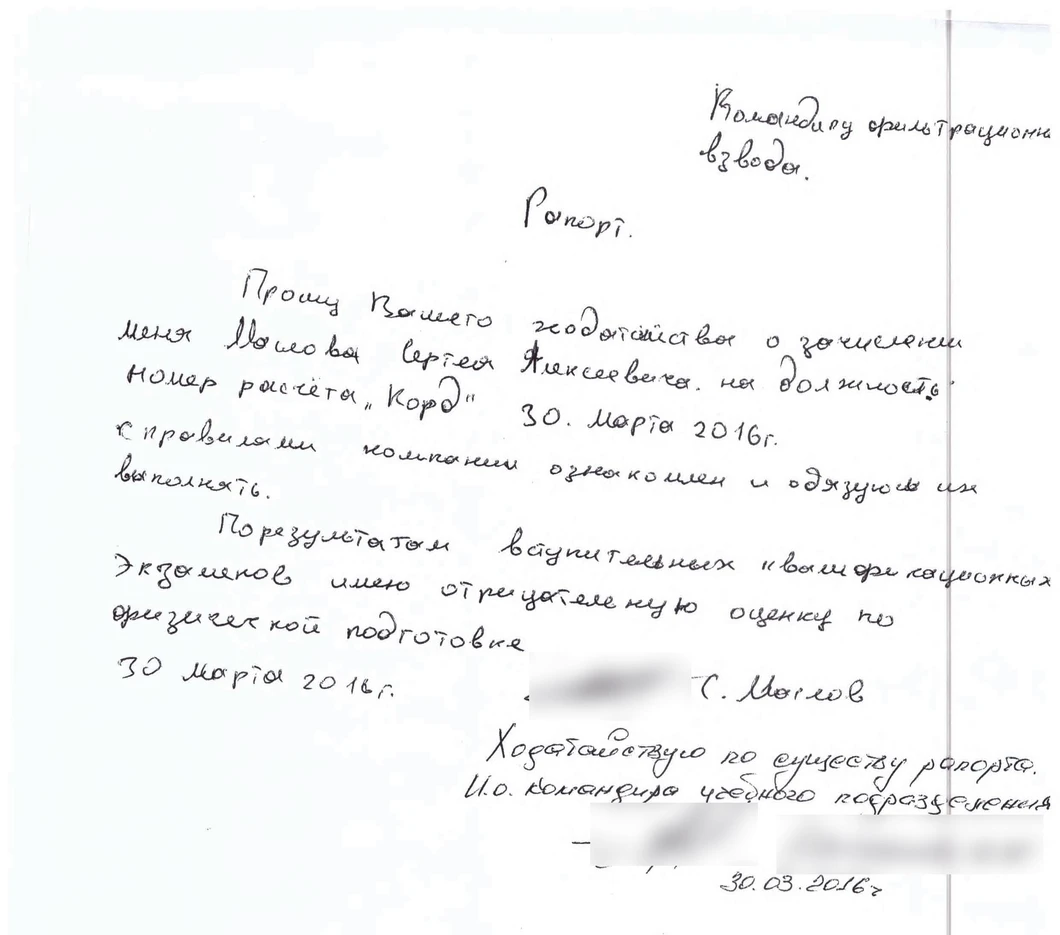 Командиру фильтрационн
взвода.
Рапорт.
Прошу Вашего ходатайства о зачислении
меня Маслова Сергея Алексеевича. на должность
номер расчёта „Корд" 30. Марта 2016г.
с правилами компании ознакомлен и обязуюсь их
выполнять.
По результатам вступительных квалификационных
Экзаменов имею отрицателеную оценку по
физической подготовке
30 Марта 2016г. С. Маслов
Ходатайствую по существу рапорта.
И.о. командира учебного подразделения
30.03.2016г